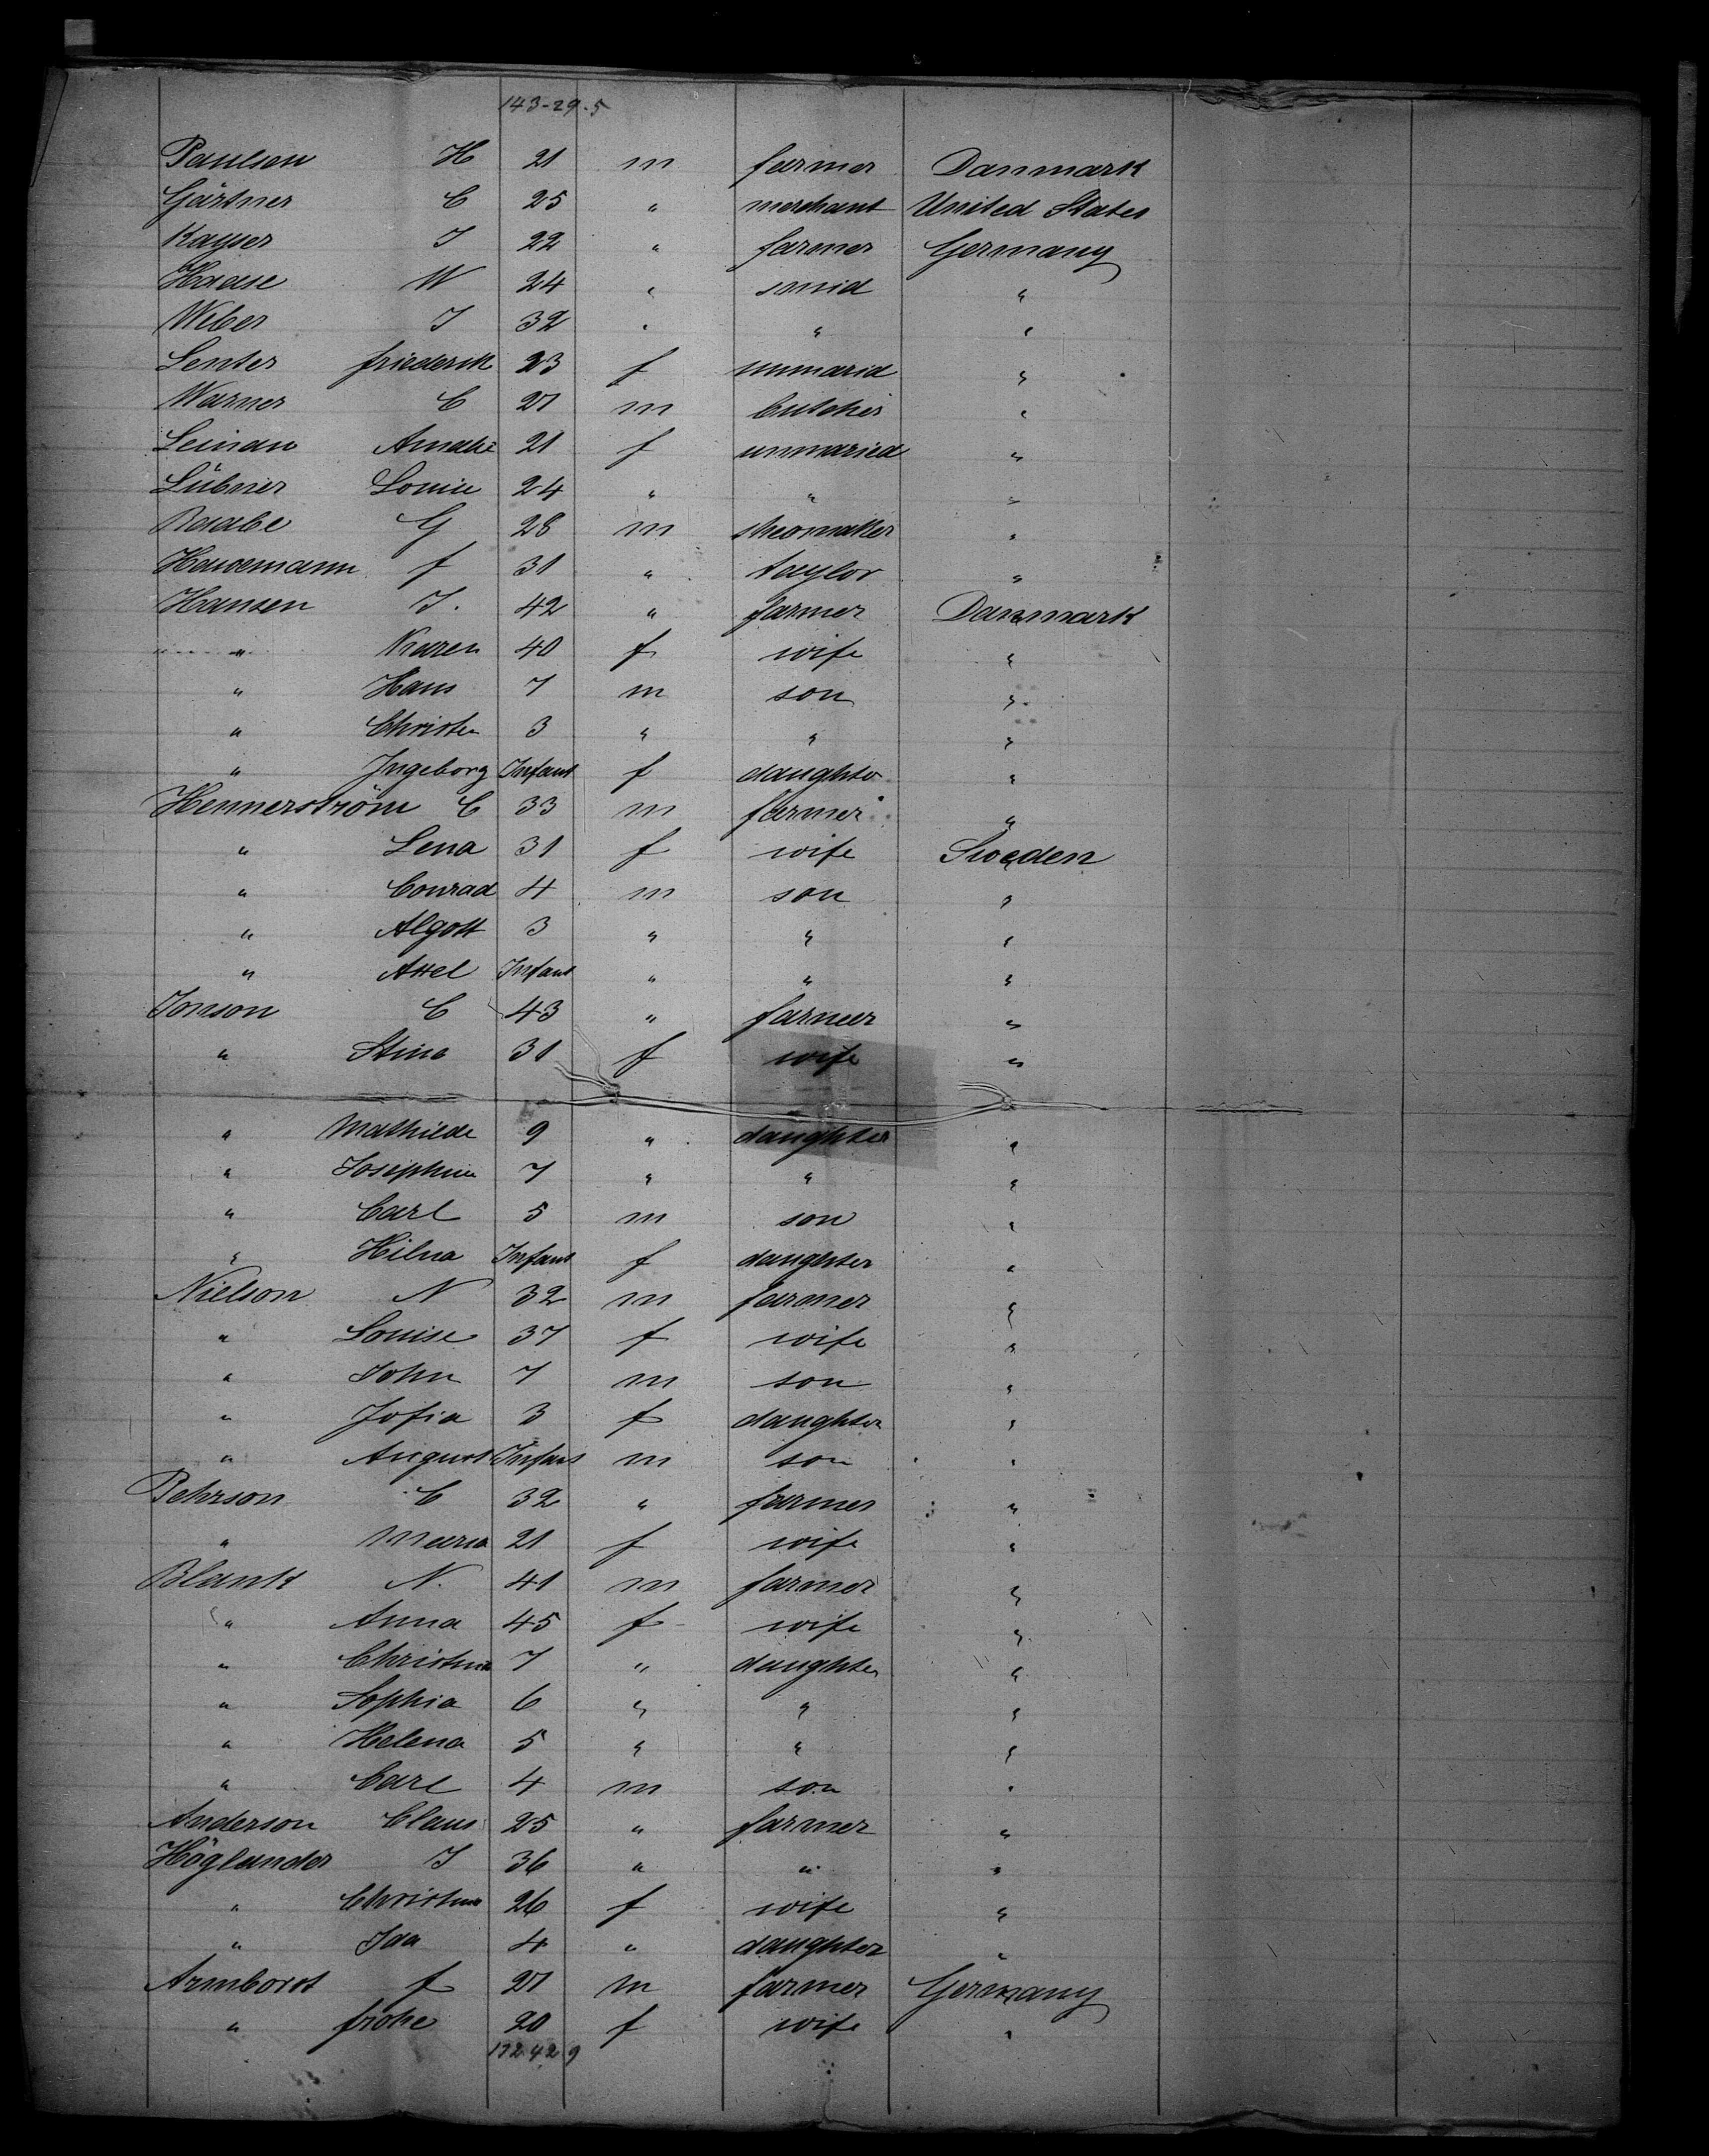 143-29-5
Paulsen H 21 m farmer Danmark
Gärtner C 25 " merchant United States
Kayser J 22 " farmer Germany
Haase W 24 " smid "
Weber J 32 " " "
Senter friederik 23 f unmarid "
Warner C 27 m butcher "
Leinau Amalie 21 f unmaried "
Lübner Louise 24 " " "
Raabe G 28 m sheomaker "
Hausemann f 31 " taylor "
Hansen J. 42 " farmer Danmark
" Karen 40 f wife "
" Hans 7 m son "
" Christen 3 " " "
" Ingeborg Infant f daughter "
Hennerström C 33 m farmer "
" Lena 31 f wife Sweden
" Conrad 4 m son "
" Algott 3 " " "
" Axel Infant " " "
Jonson C 43 " farmer "
" Stina 31 f wife "
" Mathilde 9 " daughter "
" Josephine 7 " " "
" Carl 5 m son "
" Hilna Infant f daughter "
Nielson N 32 m farmer "
" Louise 37 f wife "
" John 7 m son "
" Jofia 3 f daughter "
" August Infant m son "
Pehrson C 32 " farmer "
" Maria 21 f wife "
Blank N. 41 m farmer "
" Anna 45 f wife "
" Christina 7 " daughter "
" Sophia 6 " " "
" Helena 5 " " "
" Carl 4 m son "
Anderson Claus 25 " farmer "
Höglander J 36 " " "
" Christina 26 f wife "
" Ida 4 " daughter "
Armborst f 27 m farmer Germany
" 20 f wife "
172 42 9